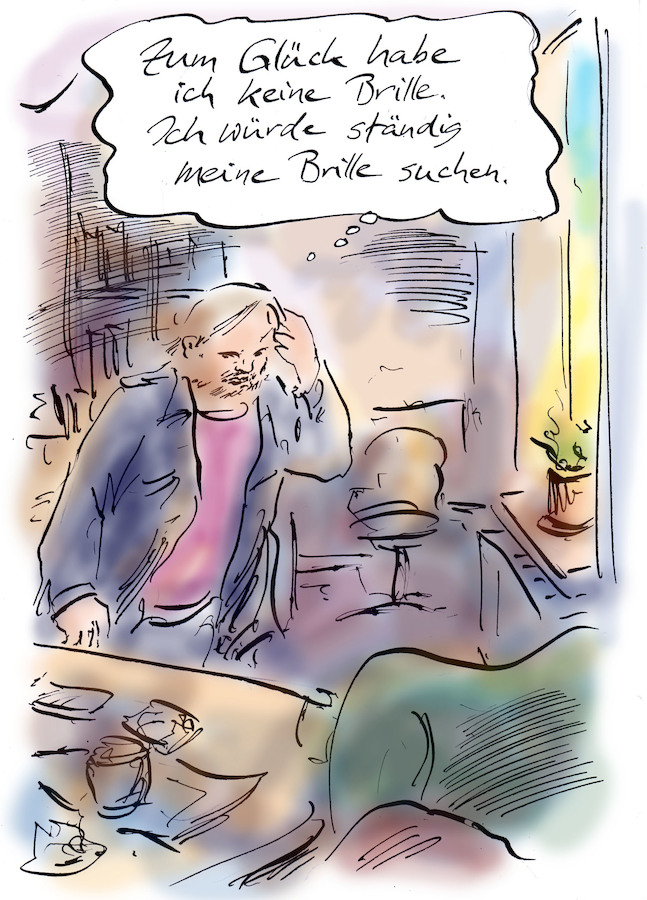 Zum Glück habe
ich keine Brille.
Ich würde ständig
meine Brille suchen.